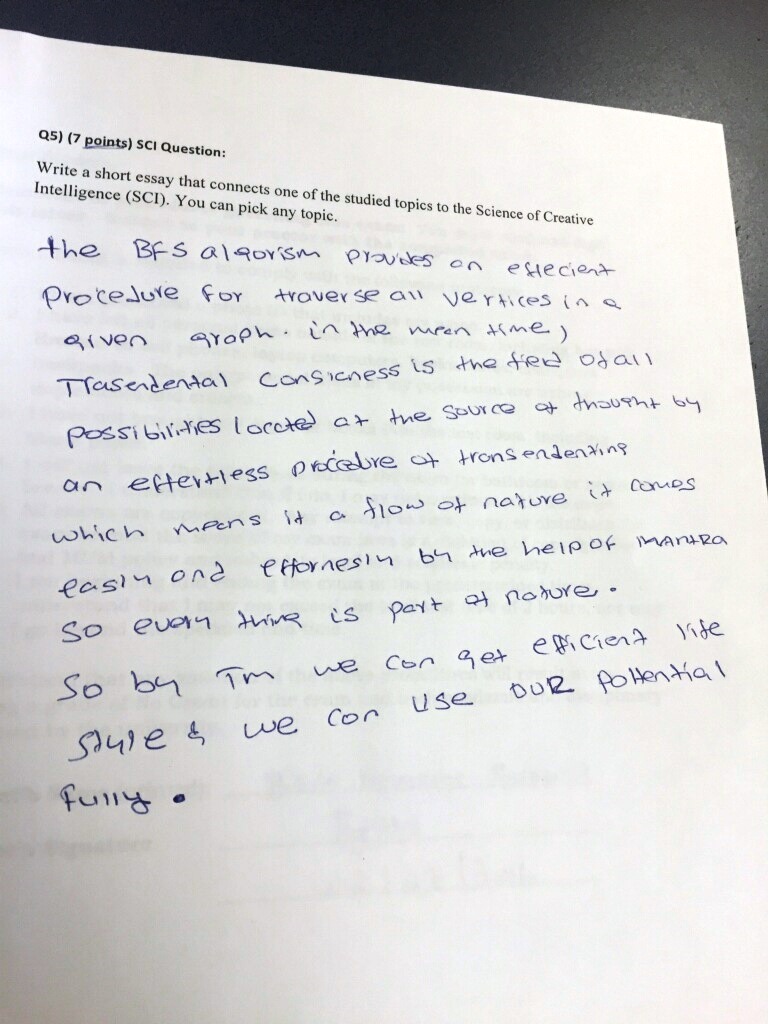 Q5) (7 points) SCI Question:
Write a short essay that connects one of the studied topics to the Science of Creative
Intelligence (SCI). You can pick any topic.
the BFS algorism provides an effecient
procedure for traverse all vertices in a
given graph. in the mean time,
Trasendental Consicness is the field of all
possibilities located at the source of thought by
an effertless procedure of transendenting
which means it a flow of nature it comes
easily and effornesly by the help of MANTRA
so every thing is part of nature.
So by Tm we can get efficient life
style & we can use OUR pottential
fully.